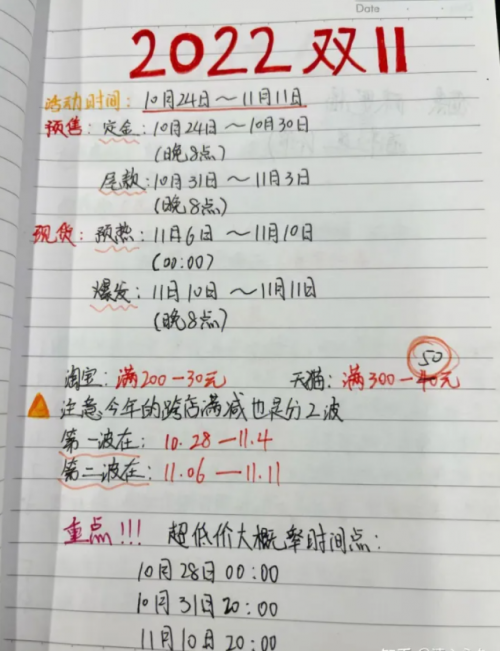 Date
2022 双11
活动时间: 10月24日～11月11日
预售: 定金: 10月24日～10月30日
(晚8点)
尾款: 10月31日～11月3日
(晚8点)
现货: 预热: 11月6日～11月10日
(00:00)
爆发: 11日10日～11月11日
(晚8点)
50
淘宝: 满200-30元 天猫: 满300-40元
注意今年的跨店满减也是分2波
第一波在: 10.28—11.4
第二波在: 11.06—11.11
重点!!! 超低价大概率时间点:
10月28日 00:00
10月31日 20:00
11月10日 20:00